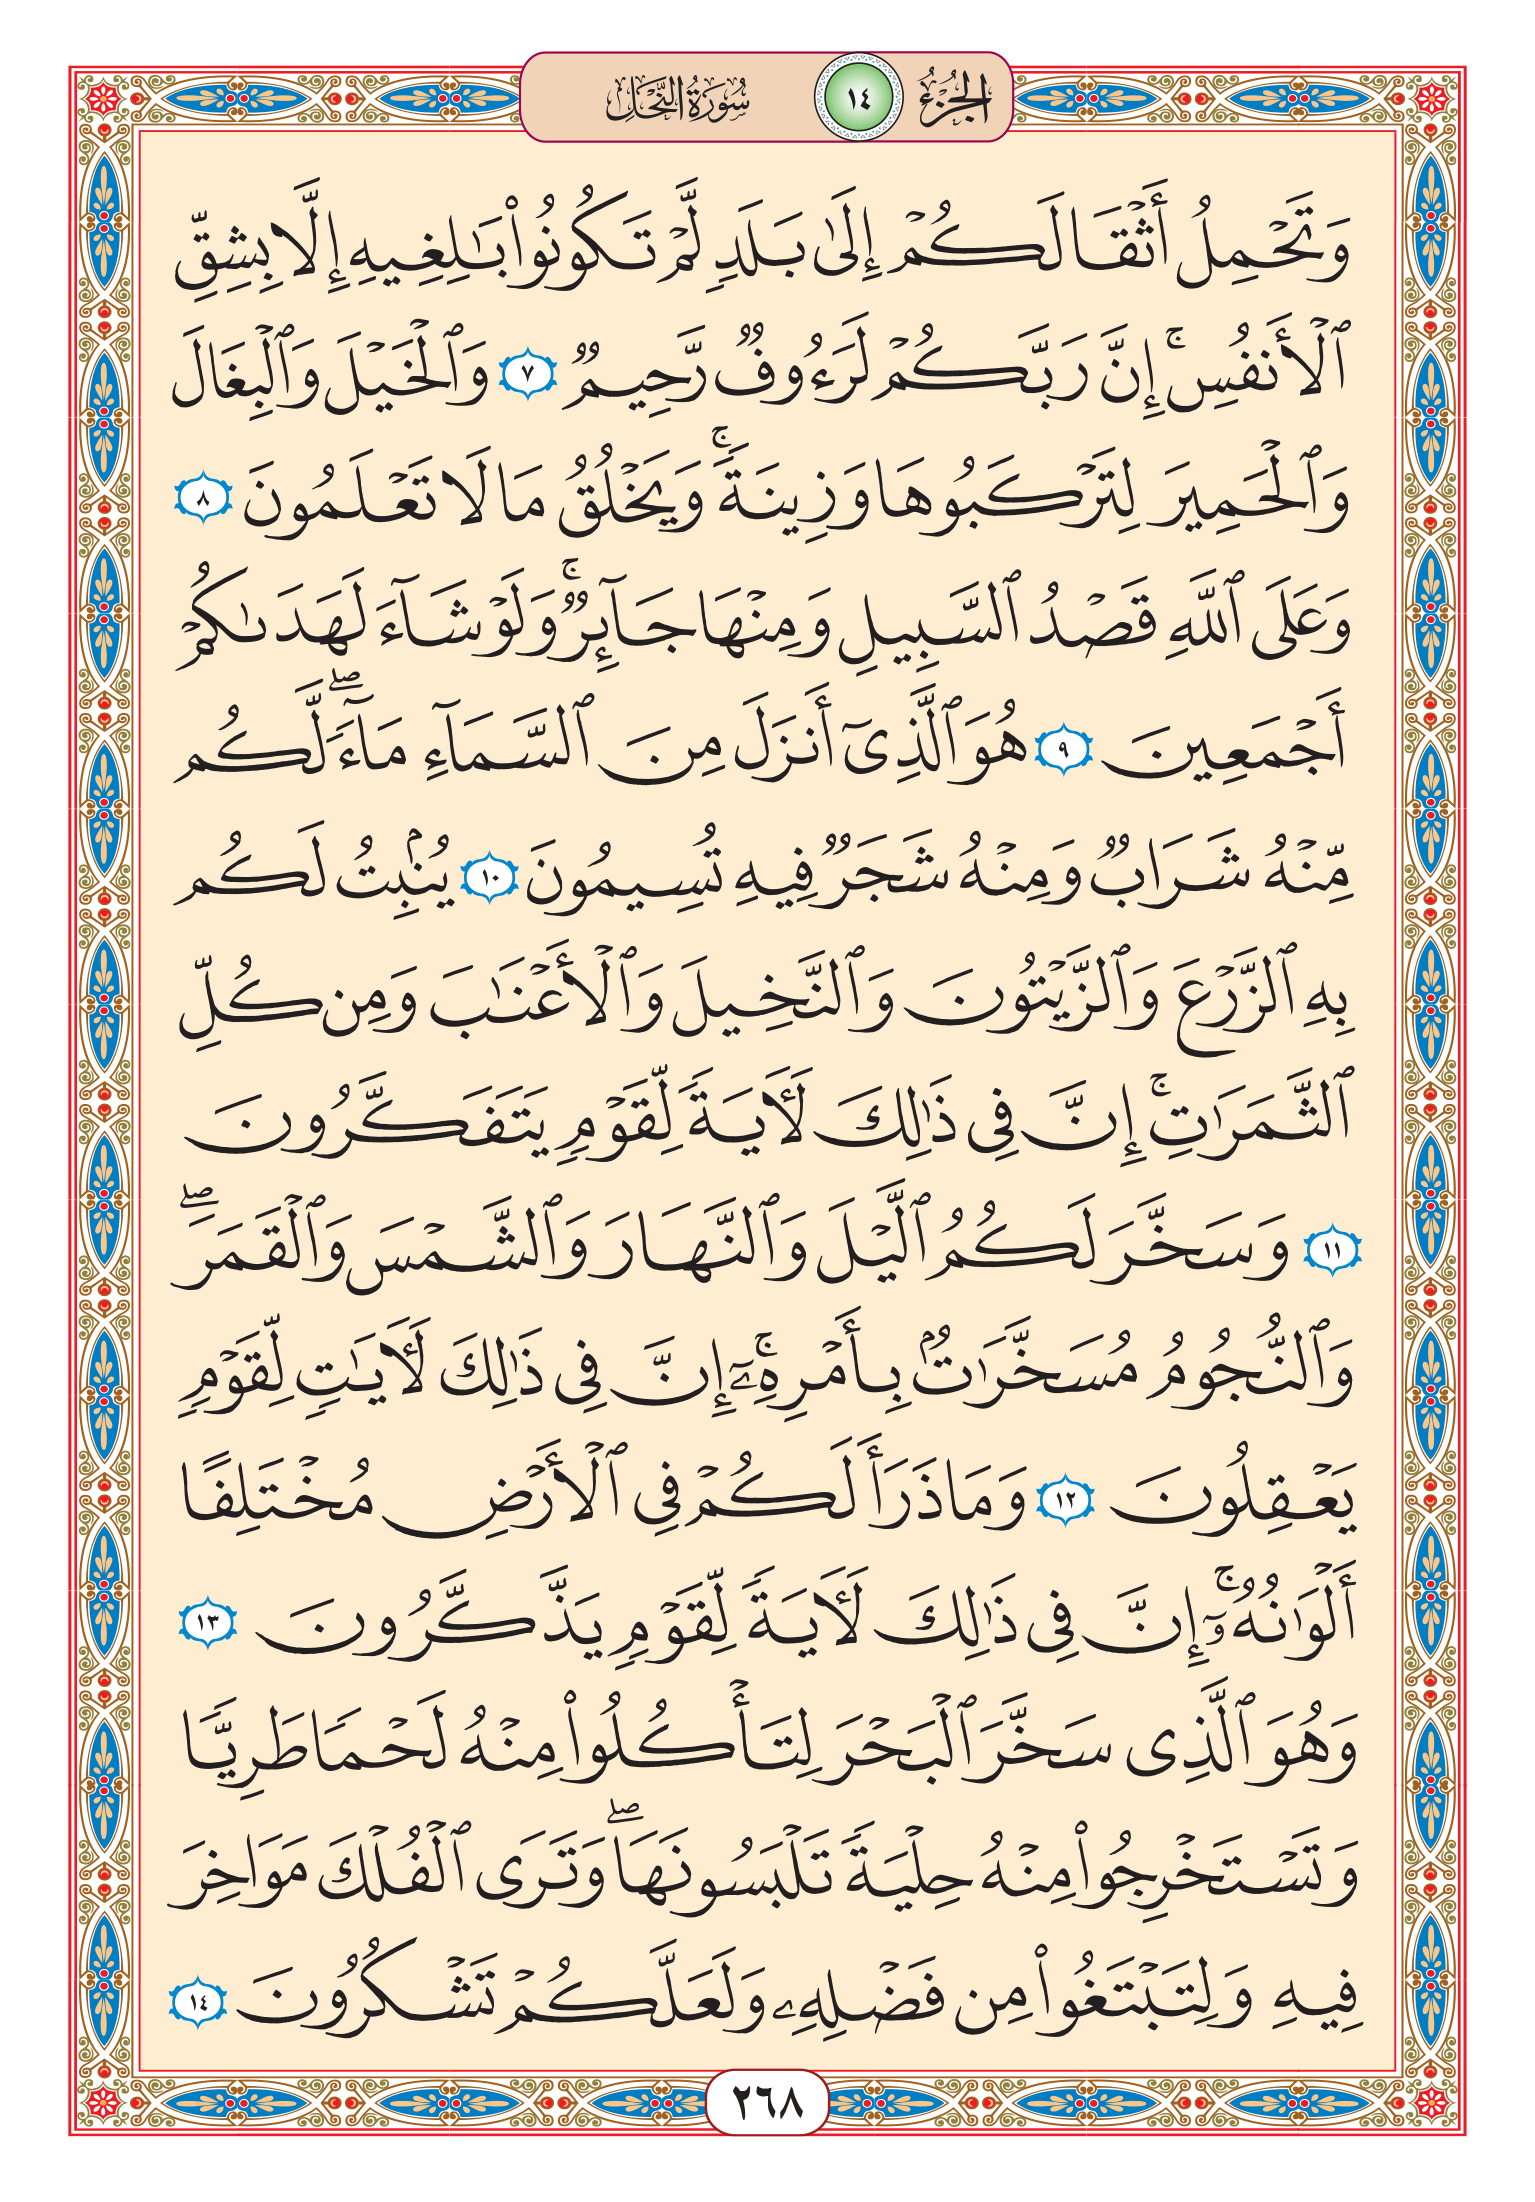 الجزء ١٤ سورة النحل
وَتَحْمِلُ أَثْقَالَكُمْ إِلَىٰ بَلَدٍ لَّمْ تَكُونُوا۟ بَـٰلِغِيهِ إِلَّا بِشِقِّ
ٱلْأَنفُسِ ۚ إِنَّ رَبَّكُمْ لَرَءُوفٌ رَّحِيمٌ ٧ وَٱلْخَيْلَ وَٱلْبِغَالَ
وَٱلْحَمِيرَ لِتَرْكَبُوهَا وَزِينَةً ۚ وَيَخْلُقُ مَا لَا تَعْلَمُونَ ٨
وَعَلَى ٱللَّهِ قَصْدُ ٱلسَّبِيلِ وَمِنْهَا جَآئِرٌ ۚ وَلَوْ شَآءَ لَهَدَىٰكُمْ
أَجْمَعِينَ ٩ هُوَ ٱلَّذِىٓ أَنزَلَ مِنَ ٱلسَّمَآءِ مَآءً ۖ لَّكُم
مِّنْهُ شَرَابٌ وَمِنْهُ شَجَرٌ فِيهِ تُسِيمُونَ ١٠ يُنۢبِتُ لَكُم
بِهِ ٱلزَّرْعَ وَٱلزَّيْتُونَ وَٱلنَّخِيلَ وَٱلْأَعْنَـٰبَ وَمِن كُلِّ
ٱلثَّمَرَٰتِ ۚ إِنَّ فِى ذَٰلِكَ لَـَٔايَةً لِّقَوْمٍ يَتَفَكَّرُونَ
١١ وَسَخَّرَ لَكُمُ ٱلَّيْلَ وَٱلنَّهَارَ وَٱلشَّمْسَ وَٱلْقَمَرَ ۖ
وَٱلنُّجُومُ مُسَخَّرَٰتٌۢ بِأَمْرِهِۦٓ ۚ إِنَّ فِى ذَٰلِكَ لَـَٔايَـٰتٍ لِّقَوْمٍ
يَعْقِلُونَ ١٢ وَمَا ذَرَأَ لَكُمْ فِى ٱلْأَرْضِ مُخْتَلِفًا
أَلْوَٰنُهُۥٓ ۚ إِنَّ فِى ذَٰلِكَ لَـَٔايَةً لِّقَوْمٍ يَذَّكَّرُونَ ١٣
وَهُوَ ٱلَّذِى سَخَّرَ ٱلْبَحْرَ لِتَأْكُلُوا۟ مِنْهُ لَحْمًا طَرِيًّا
وَتَسْتَخْرِجُوا۟ مِنْهُ حِلْيَةً تَلْبَسُونَهَا ۖ وَتَرَى ٱلْفُلْكَ مَوَاخِرَ
فِيهِ وَلِتَبْتَغُوا۟ مِن فَضْلِهِۦ وَلَعَلَّكُمْ تَشْكُرُونَ ١٤
٢٦٨